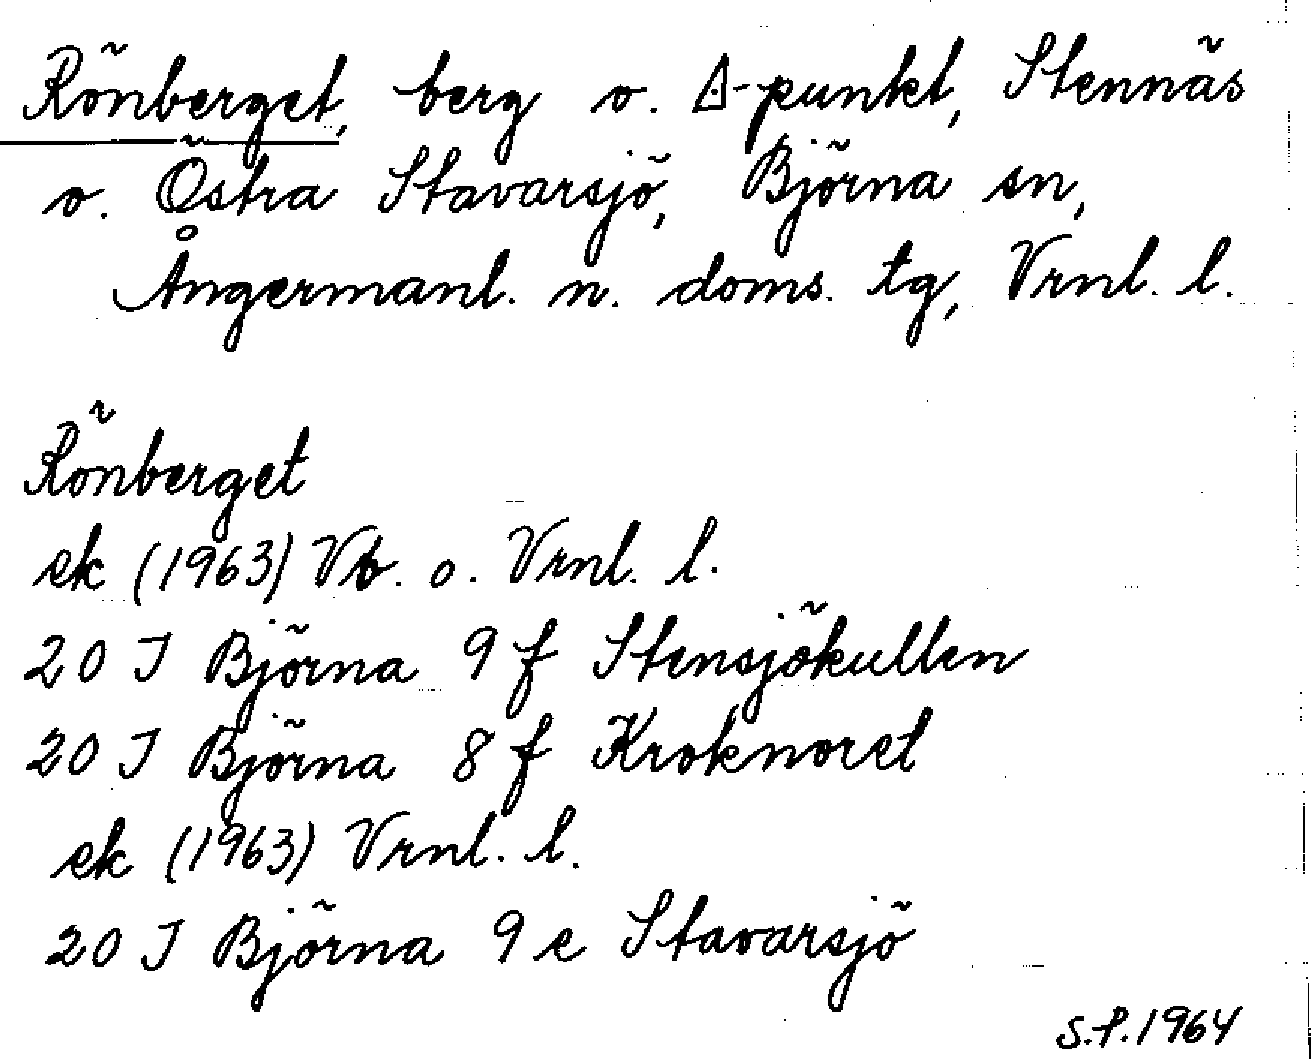 Rönberget, berg o. △-punkt, Stennäs
o. Östra Stavarsjö, Björna sn,
Ångermanl. n. doms. tg, Vrnl. l.
Rönberget
ek (1963) Vb. o. Vrnl. l.
20 J Björna 9 f Stensjökullen
20 J Björna 8 f Kroknoret
ek (1963) Vrnl. l.
20 J Björna 9 e Stavarsjö
S.P. 1964